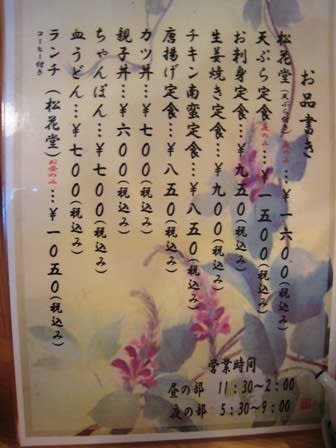 お品書き
松花堂(天ぷら付き)夜のみ…¥一六〇〇(税込み)
天ぷら定食夜のみ…¥一五〇〇(税込み)
お刺身定食…¥九五〇(税込み)
生姜焼き定食…¥九〇〇(税込み)
チキン南蛮定食…¥八五〇(税込み)
唐揚げ定食…¥八五〇(税込み)
カツ丼…¥七〇〇(税込み)
親子丼…¥六〇〇(税込み)
ちゃんぽん…¥七〇〇(税込み)
皿うどん…¥七〇〇(税込み)
ランチ(松花堂)お昼のみ…¥一〇五〇(税込み)
コーヒー付き
営業時間
昼の部 11:30~2:00
夜の部 5:30~9:00